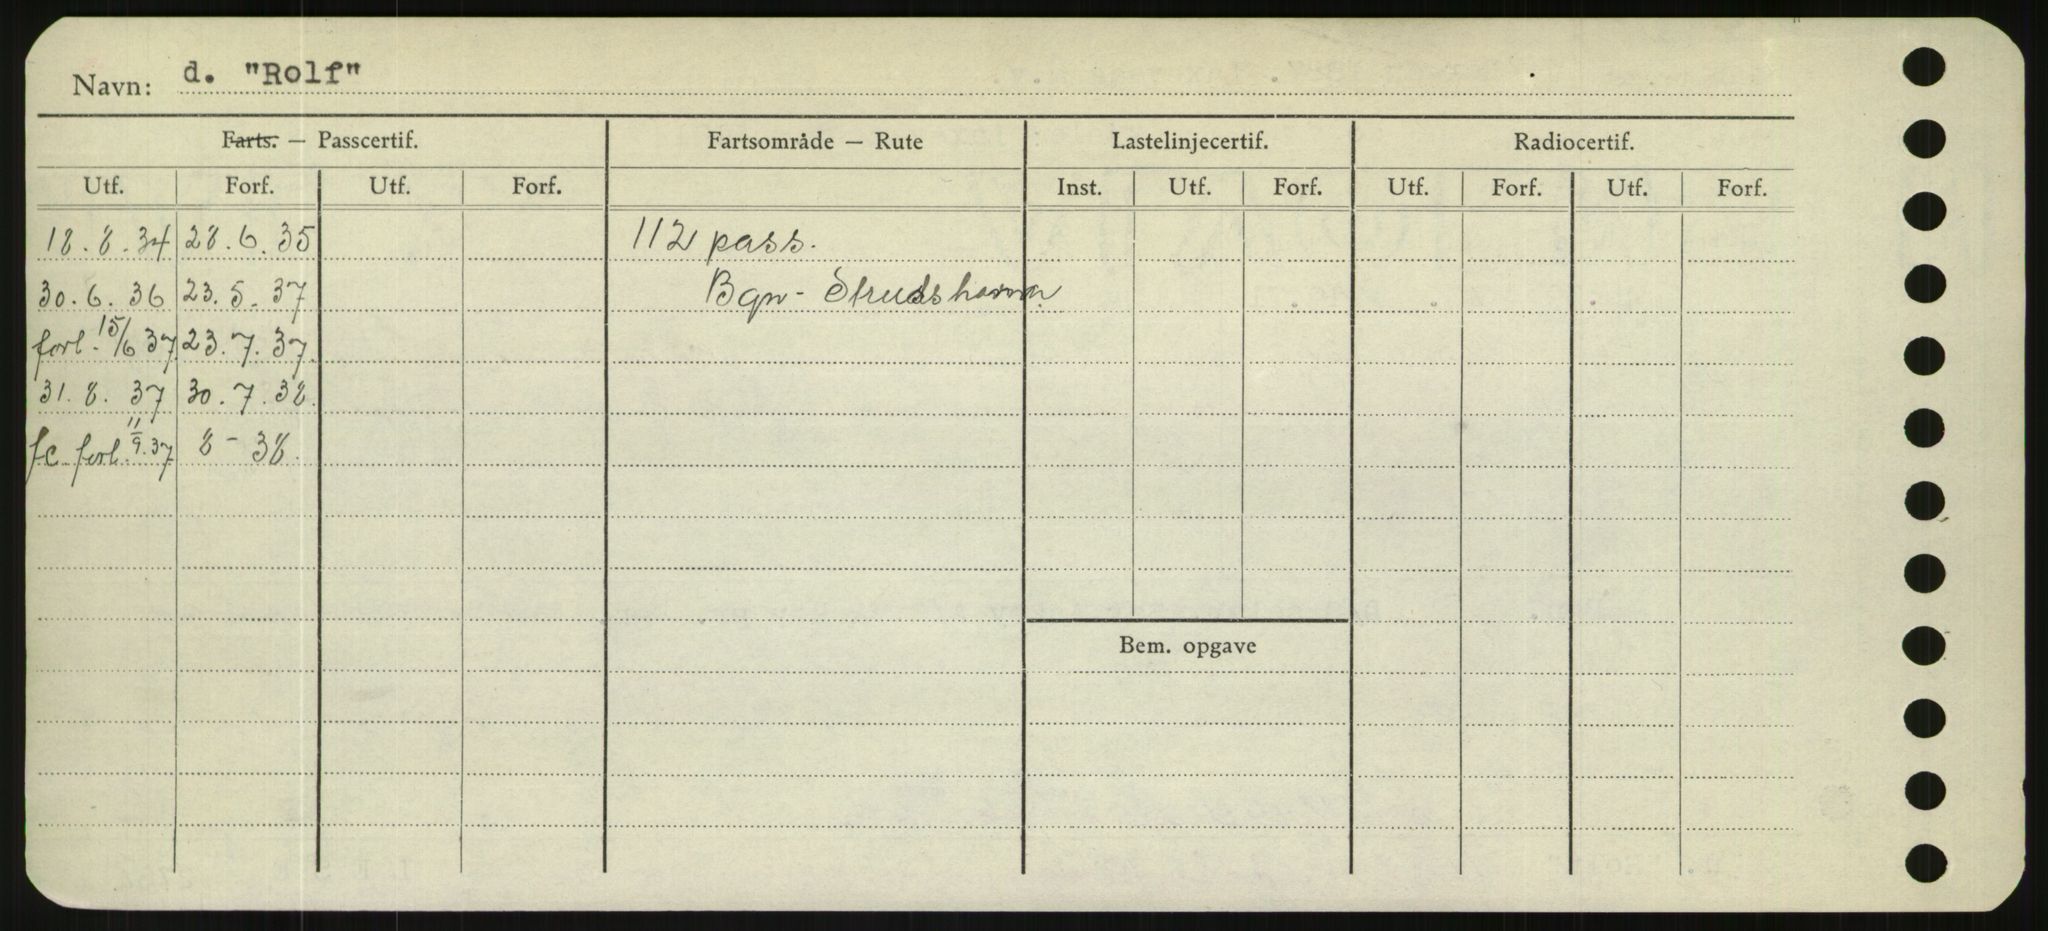 Navn: d. "Rolf"
Farts. — Passcertif. Fartsområde — Rute Lastelinjecertif. Radiocertif.
Utf. Forf. Utf. Forf. Inst. Utf. Forf. Utf. Forf. Utf. Forf.
18.8.34 28.6.35 112 pass.
30.6.36 23.5.37 Bgn - Strudshavn
forl. 15/6 37 23.7.37.
31.8.37 30.7.38.
fc forl. 11/9.37 8 - 38.
Bem. opgave